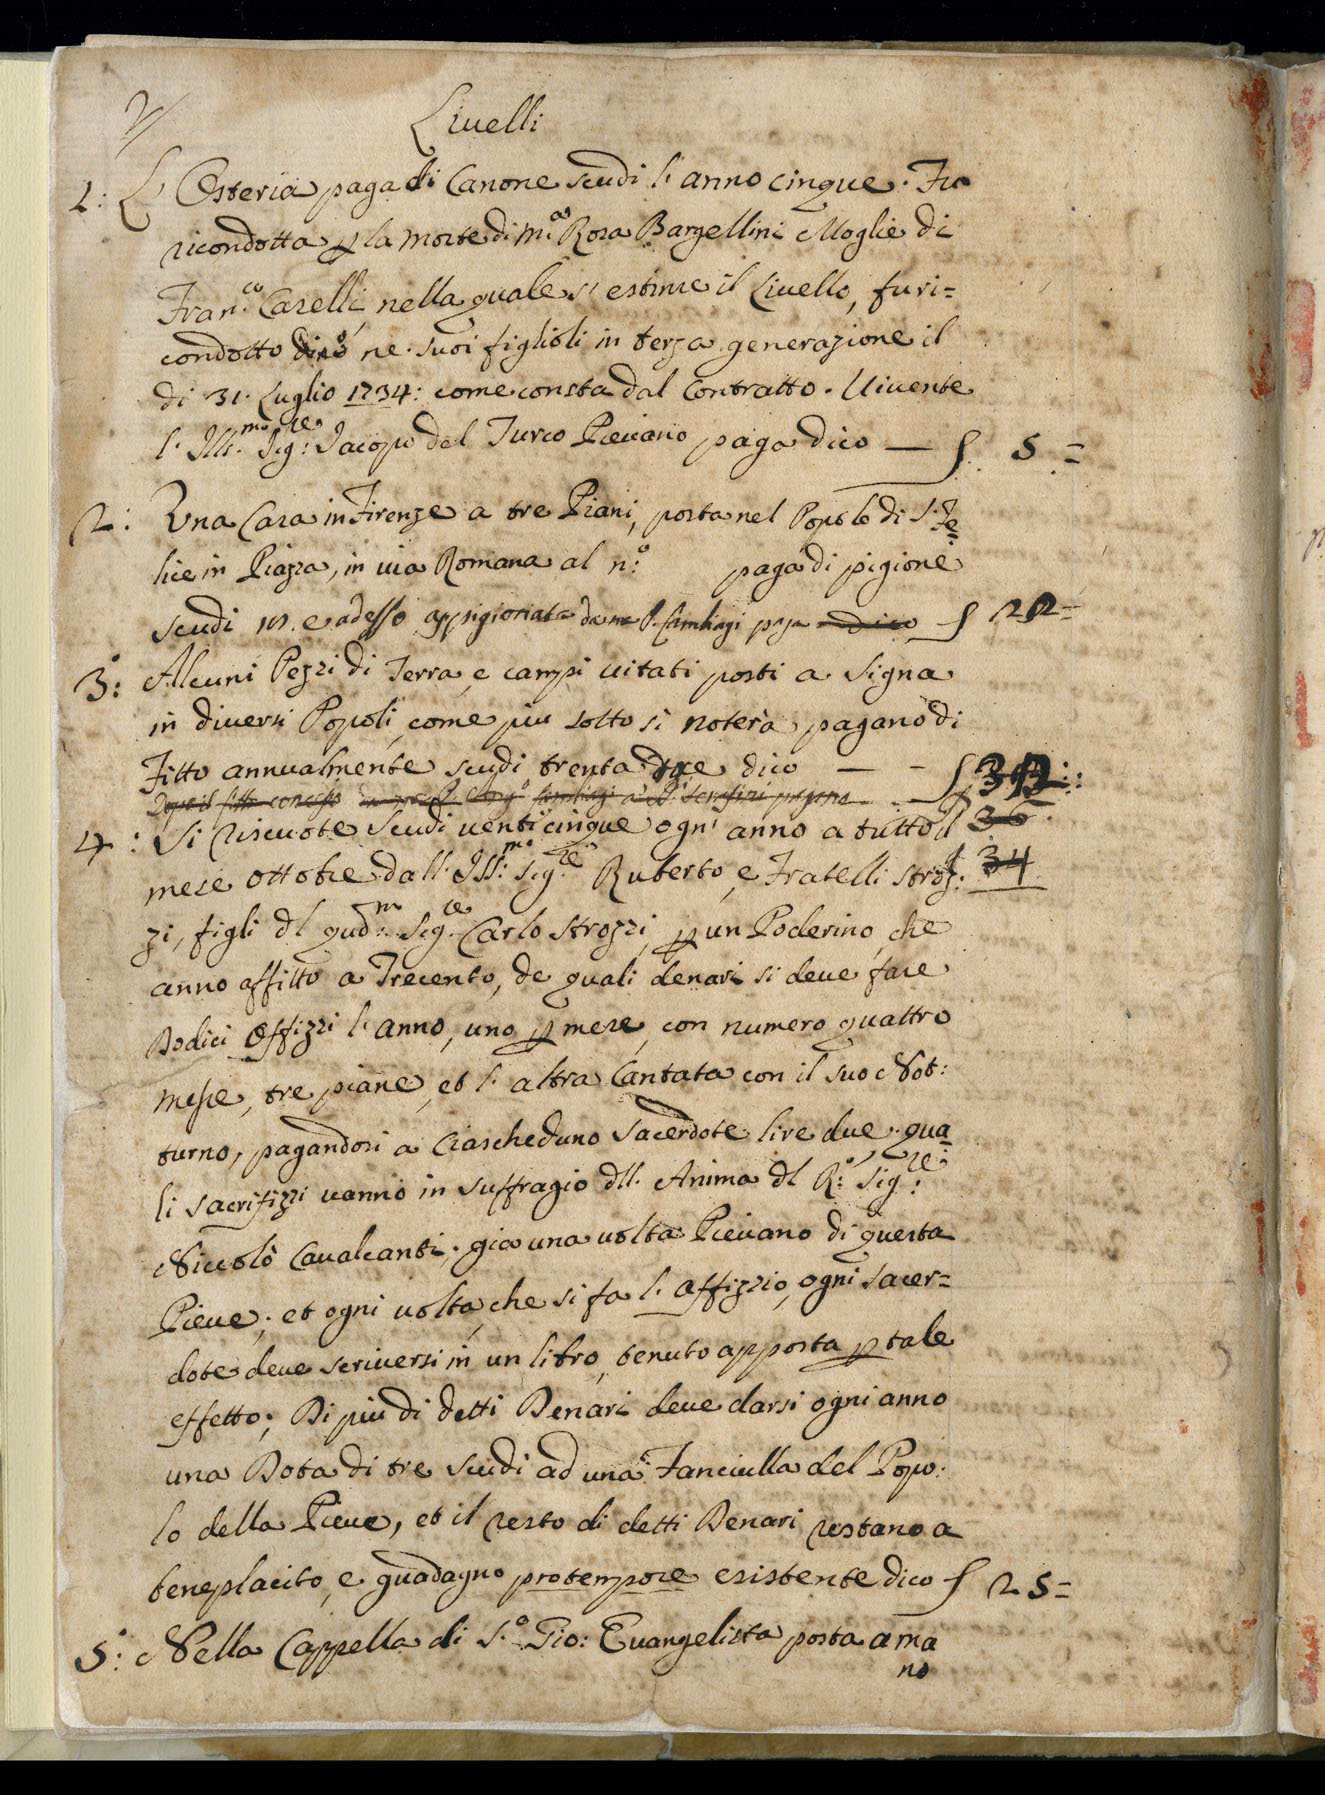 2/
Livelli
1: L'Osteria paga di Canone scudi l'anno cinque. Fu
ricondotta p la morte di M.a Rosa Bargellini Moglie di
Fran.co Caselli, nella quale s'estinse il Livello, fu ri=
condotto ne' suoi figlioli in terza generazione il
di 31. Luglio 1734: come consta dal Contratto. Vivente
l'Ill.mo Sig.re Jacopo del Turco Pievano paga dico — ʃ. 5.=
2: Una Casa in Firenze a tre Piani, posta nel Popolo di S. Fe
lice in Piazza, in via Romana al n.o paga di pigione
scudi e adesso appigionata da me P. Cambiagi paga dico ʃ 22=
3.o: Alcuni Pezzi di Terra, e campi vitati posti a Signa
in diversi Popoli, come più sotto si noterà pagano di
Fitto annualmente scudi trenta dico — – ʃ
Dopo il fitto concesso
4: Si riscuote Scudi venticinque ogn'anno a tutto il 36
mese Ottobre dall'Ill.mo Sig.re Ruberto, e Fratelli Stroz: 34
zi, figli dl qud.m Sig.re Carlo Strozzi, p un Poderino, che
anno affitto a Trecento, de quali denari si deve fare
Dodici Offizzi l'anno, uno p mese, con numero quattro
messe, tre piane, et l'altra Cantata con il suo Not:
turno, pagandosi a Ciascheduno Sacerdote lire due, qua
li sacrifizzi vanno in suffragio dll'Anima dl R.o Sig.re
Niccolò Cavalcanti, gia una volta Pievano di questa
Pieve; et ogni volta, che si fa l'affizzio, ogni sacer=
dote deve scriversi in un libro, tenuto apposta p tale
effetto; Di più di detti Denari deve darsi ogni anno
una Dota di tre scudi ad una Fanciulla del Popo:
lo della Pieve, et il resto di detti Denari restano a
beneplacito, e guadagno protempore esistente dico ʃ 25=
5.o: Nella Cappella di S.o Gio: Evangelista posta a ma
no